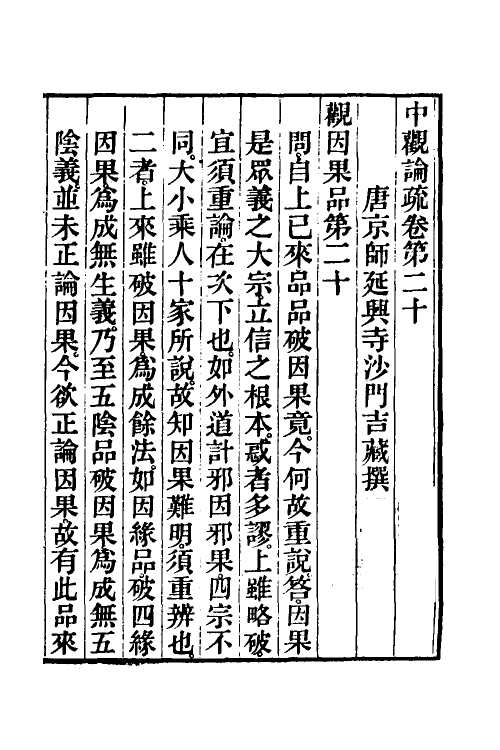 中觀論疏卷第二十
唐京師延興寺沙門吉藏撰
觀因果品第二十
問。自上已來品品破因果竟。今何故重說。答。因果
是眾義之大宗。立信之根本。惑者多謬。上雖略破。
宜須重論。在次下也。如外道計邪因邪果。四宗不
同。大小乘人十家所說。故知因果難明。須重辨也。
二者。上來雖破因果。為成餘法。如因緣品破四緣
因果。為成無生義。乃至五陰品破因果為成無五
陰義。並未正論因果。今欲正論因果。故有此品來